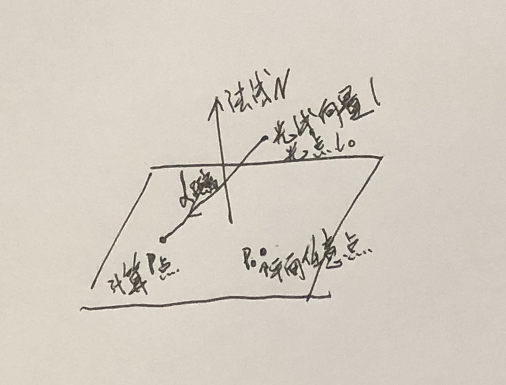 法线N
光线向量l
光点l₀
d距离
计算P点
P₀平面任意点